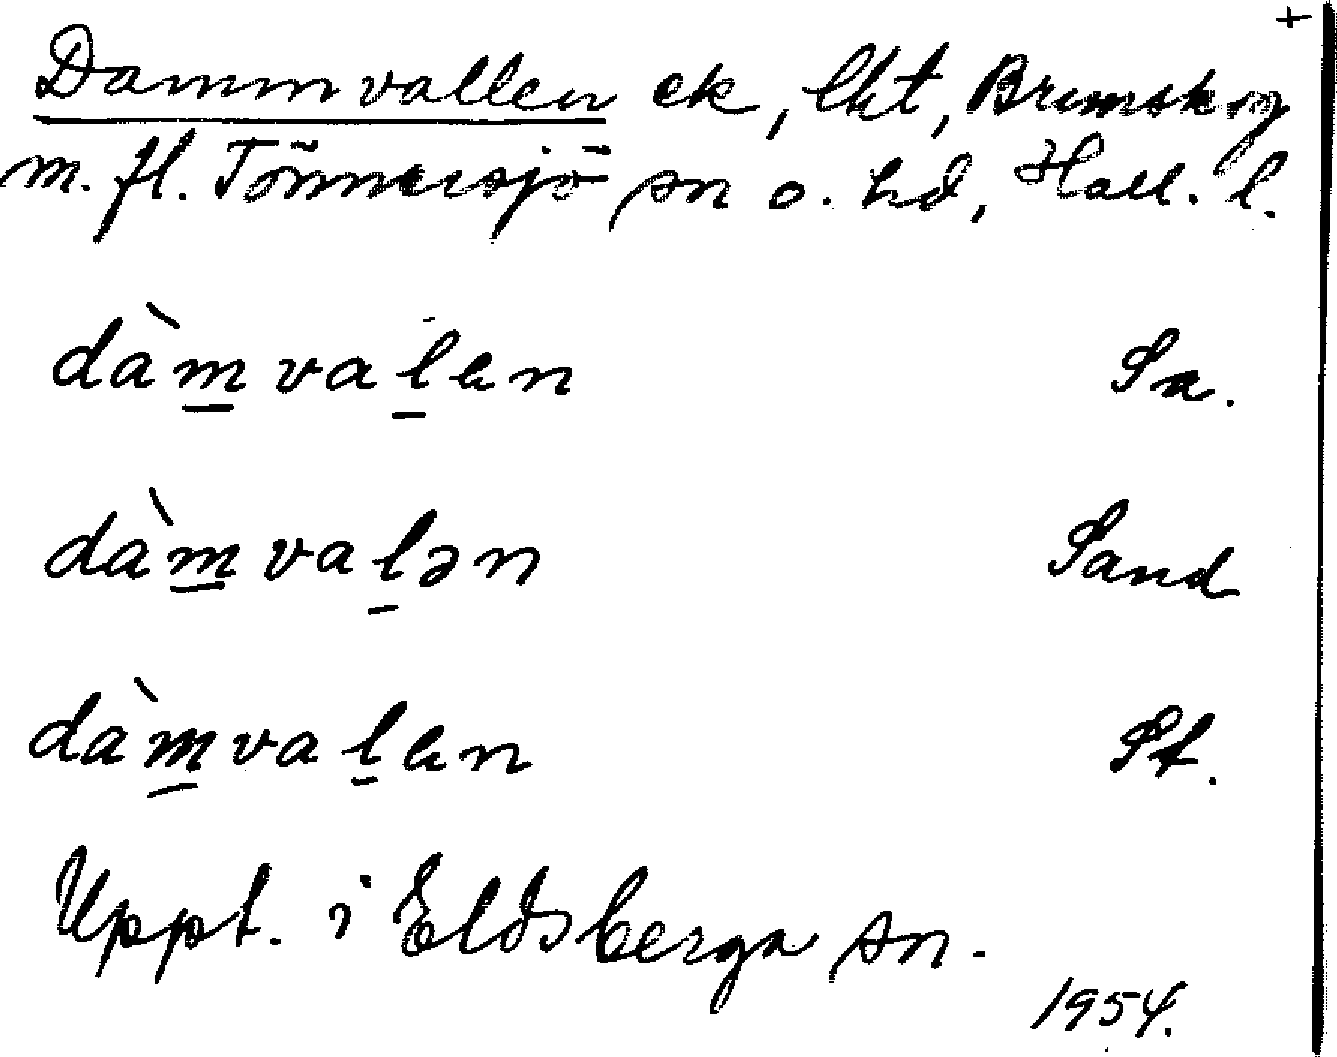 +
Dammvallen ek, lht, Brunskog
m. fl. Tönnersjö sn o. hd, Hall. l.
dàm̲val̲en Sn.
dàm̲val̲ən Sand
dàm̲val̲en St.
Uppt. i Eldsberga sn.
1954.